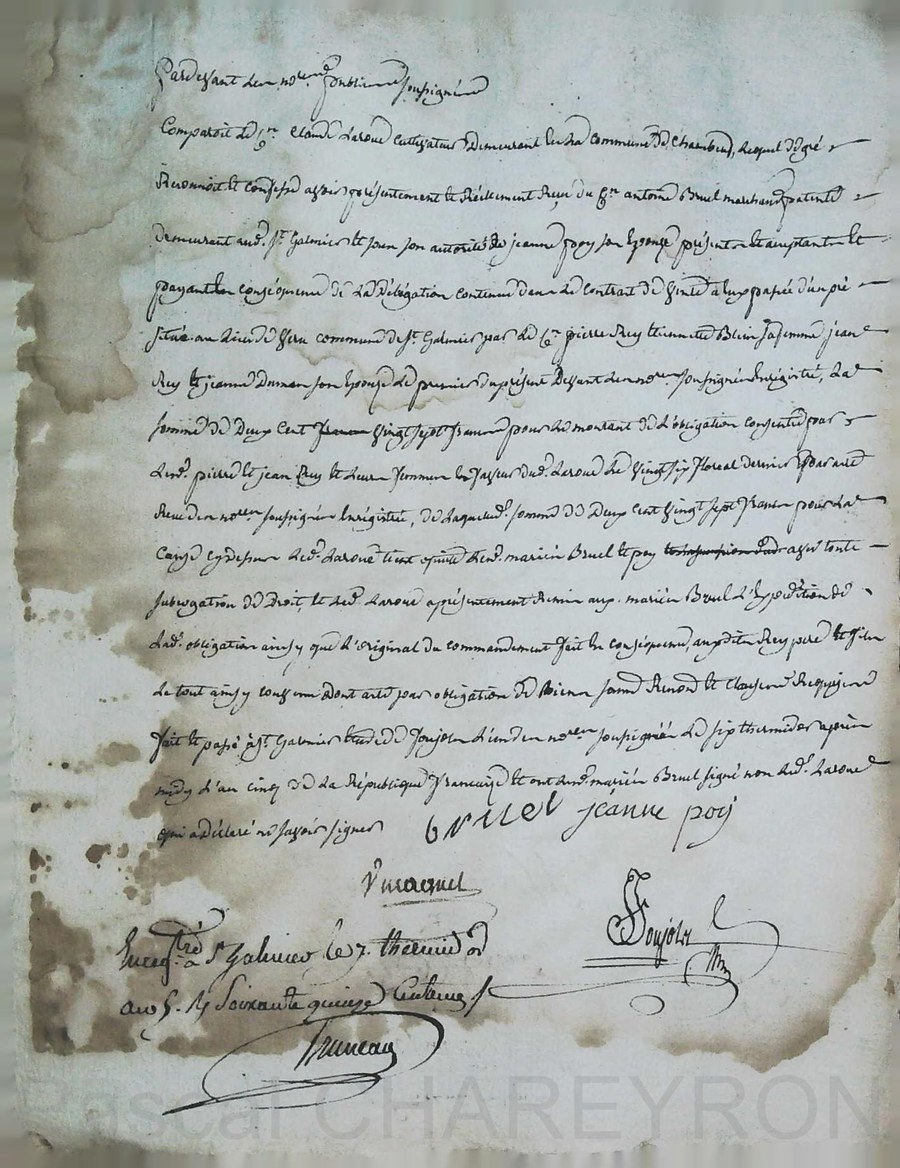 Pardevant les no.res publics soussignés
Comparoit le c.n Claude Laroue cultivateur demeurant en la commune de Chambeuf, lequel de gré
Reconnoit et confesse avoir présentement et Réellement Reçu du c.n antoine Bruel marchand patenté
demeurant aud. St. Galmier et sous son autorité de jeanne poy son Epouse présents et acceptants et
payant en conséquence de la Délégation contenue dans le contrat de vente à eux passée d'un pré
situé au lieu de commune de St. Galmier par le c.n pierre Rey et Blein sa femme jean
Rey et jeanne Dumas son Epouse le premier du présent Devant les no.res soussignés Enrégistré, La
somme de Deux Cent vingt sept francs pour le montant de l'obligation consentie par
Lesd. pierre et jean Rey et Leurs femmes en faveur dud. Laroue le vingt six floreal dernier par acte
Reçu des no.res soussignés Enrégistré, de Laquelle somme de Deux Cent vingt sept francs pour La
Cause cydessus Led. Laroue tient quitte Lesd. mariés Bruel et poy avec toute
subrogation de Droit, et Led. Laroue a présentement Remis aux d. mariés Bruel L'Expédition de
Lad. obligation ainsy que L'original du commandement fait en conséquence, auxdits Rey pere et fils
Le tout ainsy convenu dont acte par obligation de Biens soumis Renoncé et Clauses Requises
fait et passé à St. Galmier étude de Soujols L'un des no.res soussignés Le six thermidor après
midy L'an cinq de La République française et ont Lesd. mariés Bruel signé non Led. Laroue
qui a déclaré ne savoir signer
bruel jeanne poy
Soujols
Enreg.tré à St Galmier le 7. thermidor
an 5. R soixante quinze Centimes
Bruneau
Pascal CHAREYRON